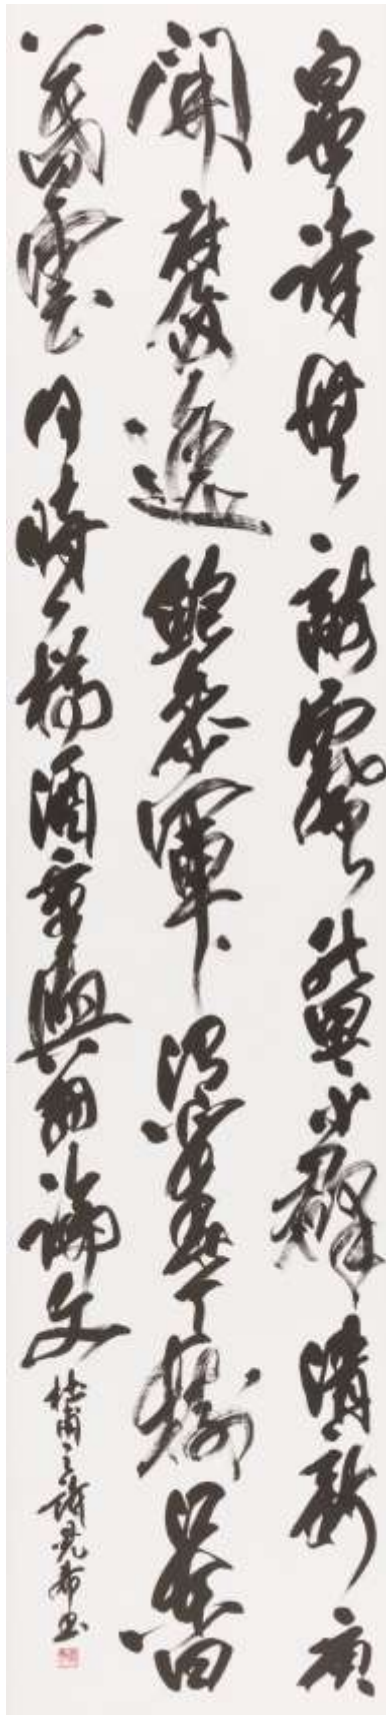 白也詩無敵飄然思不群清新庾
開府俊逸鮑參軍渭北春天樹江東日
暮雲何時一樽酒重與細論文
杜甫之詩